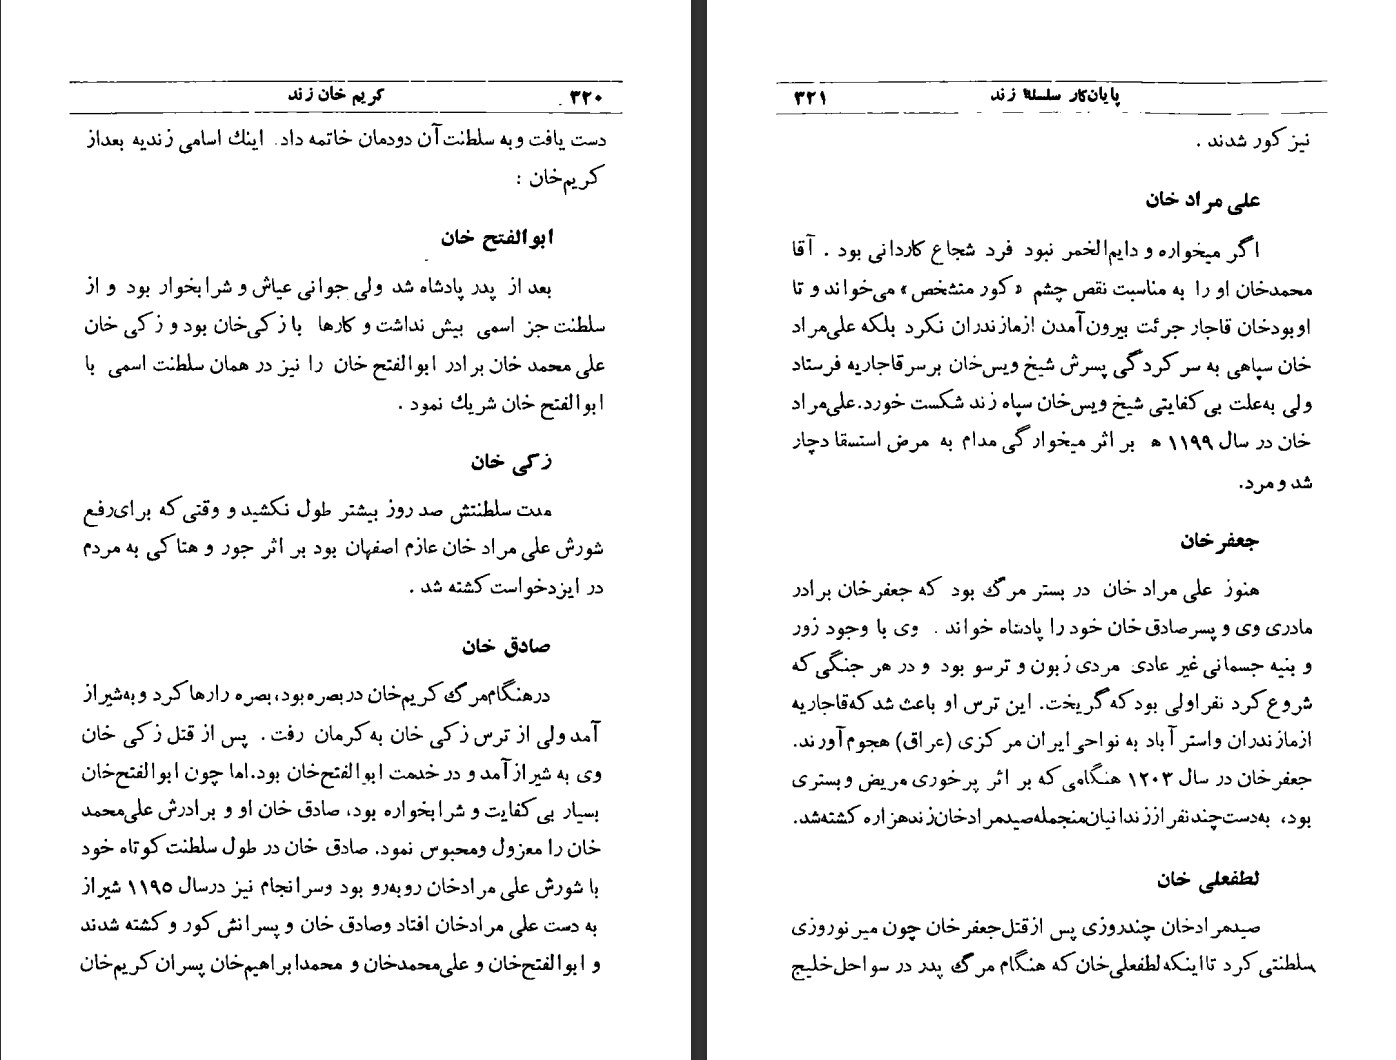 ۳۲۰ کریم خان زند
دست یافت و به سلطنت آن دودمان خاتمه داد. اینك اسامی زندیه بعداز
کریم‌خان :
ابوالفتح خان
بعد از پدر پادشاه شد ولی جوانی عیاش و شرابخوار بود و از
سلطنت جز اسمی بیش نداشت و کارها با زکی‌خان بود و زکی خان
علی محمد خان برادر ابوالفتح خان را نیز در همان سلطنت اسمی با
ابوالفتح خان شریك نمود .
زکی خان
مدت سلطنتش صد روز بیشتر طول نکشید و وقتی که برای‌رفع
شورش علی مراد خان عازم اصفهان بود بر اثر جور و هتاکی به مردم
در ایزدخواست کشته شد .
صادق خان
درهنگام‌مرگ کریم‌خان در بصره بود، بصره رارها کرد و به‌شیراز
آمد ولی از ترس زکی خان به کرمان رفت . پس از قتل زکی خان
وی به شیراز آمد و در خدمت ابوالفتح‌خان بود.اما چون ابوالفتح‌خان
بسیار بی‌کفایت و شرابخواره بود، صادق خان او و برادرش علی‌محمد
خان را معزول ومحبوس نمود. صادق خان در طول سلطنت کوتاه خود
با شورش علی مرادخان روبه‌رو بود وسرانجام نیز درسال ۱۱۹۵ شیراز
به دست علی مرادخان افتاد وصادق خان و پسرانش کور و کشته شدند
و ابوالفتح‌خان و علی‌محمدخان و محمدابراهیم‌خان پسران کریم‌خان
پایان‌کار سلسلهٔ زند ۳۲۱
نیز کور شدند .
علی مراد خان
اگر میخواره و دایم‌الخمر نبود فرد شجاع کاردانی بود . آقا
محمدخان او را به مناسبت نقص چشم «کور متشخص» می‌خواند و تا
اوبودخان قاجار جرئت بیرون‌آمدن ازمازندران نکرد بلکه علی‌مراد
خان سپاهی به سرکردگی پسرش شیخ ویس‌خان برسرقاجاریه فرستاد
ولی به‌علت بی‌کفایتی شیخ ویس‌خان سپاه زند شکست خورد.علی‌مراد
خان در سال ۱۱۹۹ ه بر اثر میخوارگی مدام به مرض استسقا دچار
شد و مرد.
جعفرخان
هنوز علی مراد خان در بستر مرگ بود که جعفرخان برادر
مادری وی و پسرصادق خان خود را پادشاه خواند . وی با وجود زور
و بنیه جسمانی غیر عادی مردی زبون و ترسو بود و در هر جنگی‌که
شروع کرد نفراولی بود که گریخت. این ترس او باعث شد که قاجاریه
ازمازندران واسترآباد به نواحی ایران مرکزی (عراق) هجوم آورند.
جعفرخان در سال ۱۲۰۳ هنگامی که بر اثر پرخوری مریض وبستری
بود، به‌دست‌چندنفراززندانیان‌منجمله‌صیدمرادخان‌زندهزاره کشته‌شد.
لطفعلی خان
صیدمرادخان چندروزی پس ازقتل‌جعفرخان چون میرنوروزی
سلطنتی کرد تااینکه لطفعلی‌خان که هنگام مرگ پدر در سواحل‌خلیج